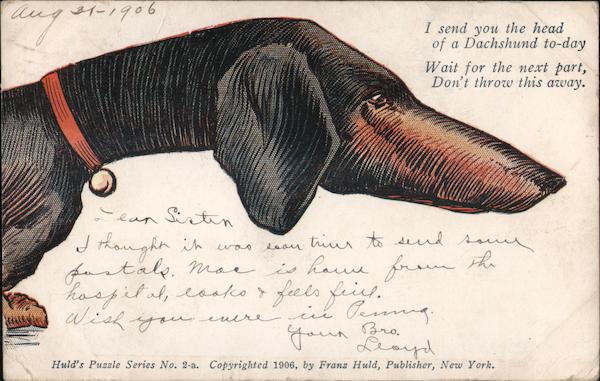 Aug 31-1906
I send you the head
of a Dachshund to-day
Wait for the next part,
Don't throw this away.
Dear Sister
I thought it was your time to send some
postals. Mac is home from the
hospital, looks & feels fine.
Wish you were in Penna.
Your Bro.
Lloyd
Huld's Puzzle Series No. 2-a. Copyrighted 1906, by Franz Huld, Publisher, New York.